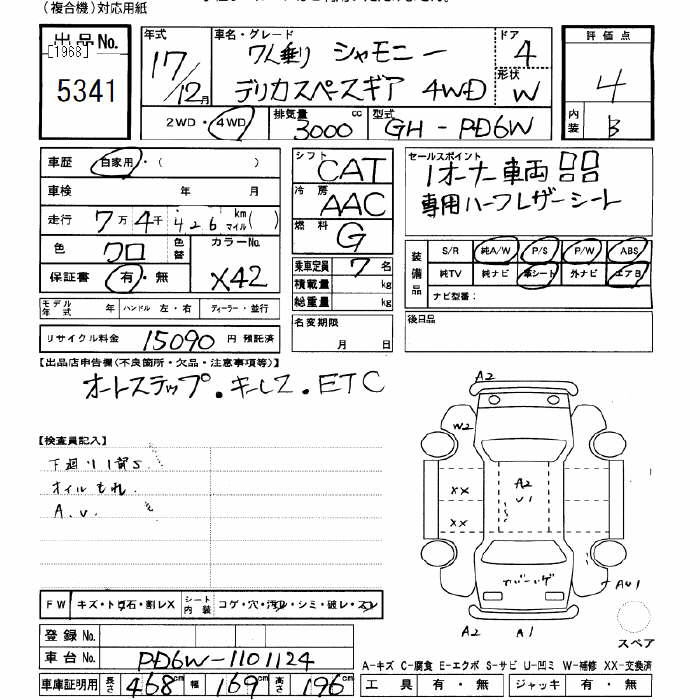 (複合機)対応用紙
出品No.
[1968]
5341
年式
17/12月
車名・グレード
7人乗り シャモニー
デリカスペースギア 4WD
ドア
4
形状
W
評価点
4
内装
B
2WD・4WD
排気量
3000cc
型式
GH-PD6W
車歴
自家用・( )
車検 年 月
走行 7万4千426km マイル( )
色 クロ
色替
カラーNo.
X42
保証書 有・無
モデル年式 年
ハンドル 左・右
ディーラー・並行
リサイクル料金 15090円 預託済
シフト CAT
冷房 AAC
燃料 G
乗車定員 7名
積載量 kg
総重量 kg
名変期限
月 日
セールスポイント
1オーナー車両
専用ハーフレザーシート
装備品
S/R 純A/W P/S P/W ABS
純TV 純ナビ 革シート 外ナビ エアB
ナビ型番:
後日品
【出品店申告欄(不良箇所・欠品・注意事項等)】
オートステップ・キーレス・ETC
【検査員記入】
下廻リ1部S
オイルもれ
A.U.
A2
W2
XX
XX
A2
U1
カバーハゲ
AU1
A2
A1
スペア
FW キズ・トビ石・割レX
シート内装 コゲ・穴・汚レ・シミ・破レ・スレ
登録No.
車台No. PD6W-1101124
車庫証明用 長さ 468cm 幅 169cm 高さ 196cm
A-キズ C-腐食 E-エクボ S-サビ U-凹ミ W-補修 XX-交換済
工具 有・無 ジャッキ 有・無